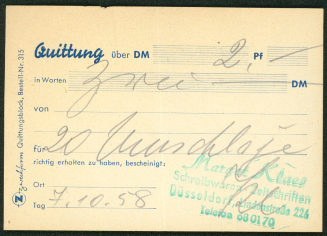 Quittung über DM 2,- Pf
in Worten zwei DM
von
für 20 Umschläge
richtig erhalten zu haben, bescheinigt:
Margot Klaes
Schreibwaren Zeitschriften
Düsseldorf, Lindenstraße 226
Telefon 68 01 70
Ort
Tag 7.10.58
Zweckform Quittungsblock, Bestell-Nr. 315